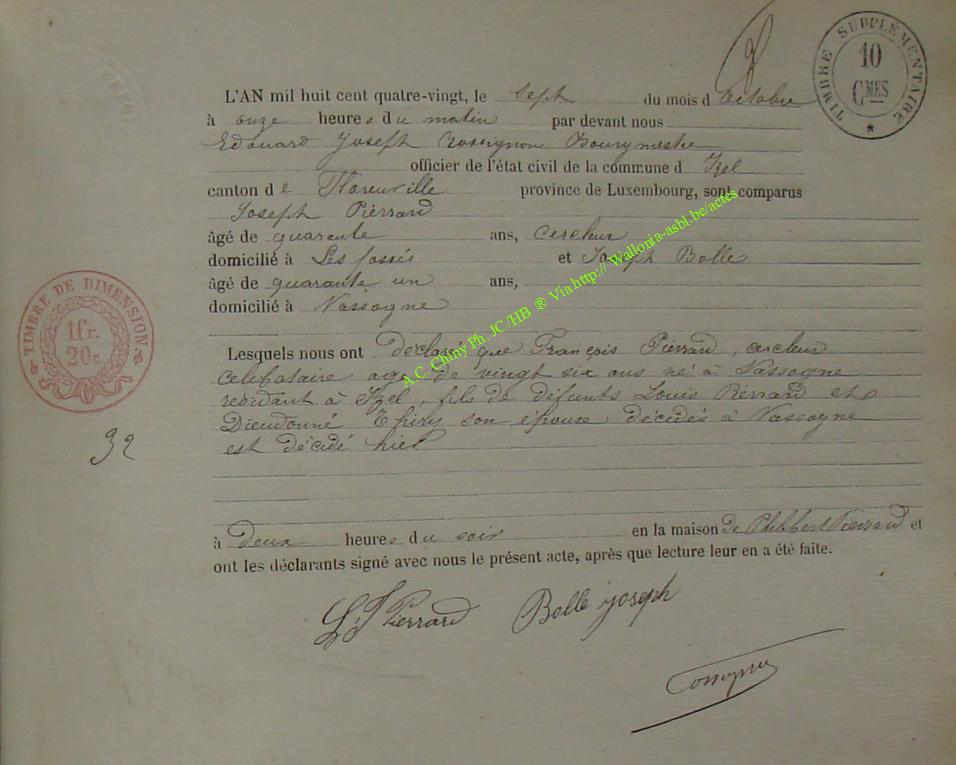 TIMBRE SUPPLÉMENTAIRE
10
CMES
L'AN mil huit cent quatre-vingt, le Sept du mois d'Octobre
à onze heures du matin par devant nous
Edouard Joseph Rossignon Bourgmestre
officier de l'état civil de la commune d'Izel
canton de Florenville province de Luxembourg, sont comparus
Joseph Pierrard
âgé de quarante ans, cercleur
domicilié à Les fossés et Joseph Bolle
âgé de quarante un ans,
domicilié à Nassogne
TIMBRE DE DIMENSION
1fr.
20c.
Lesquels nous ont déclaré que François Pierrard, cercleur
celibataire agé de vingt six ans né à Nassogne
residant à Izel, fils de défunts Louis Pierrard et
Dieudonné Thiry son épouse décédés à Nassogne
est décédé hier
32
à deux heures du soir en la maison de Philibert Pierrard et
ont les déclarants signé avec nous le présent acte, après que lecture leur en a été faite.
Pierrard Bolle joseph
A.C. Chiny Ph. JC /HB ® Via http:// Wallonia-asbl.be/actes